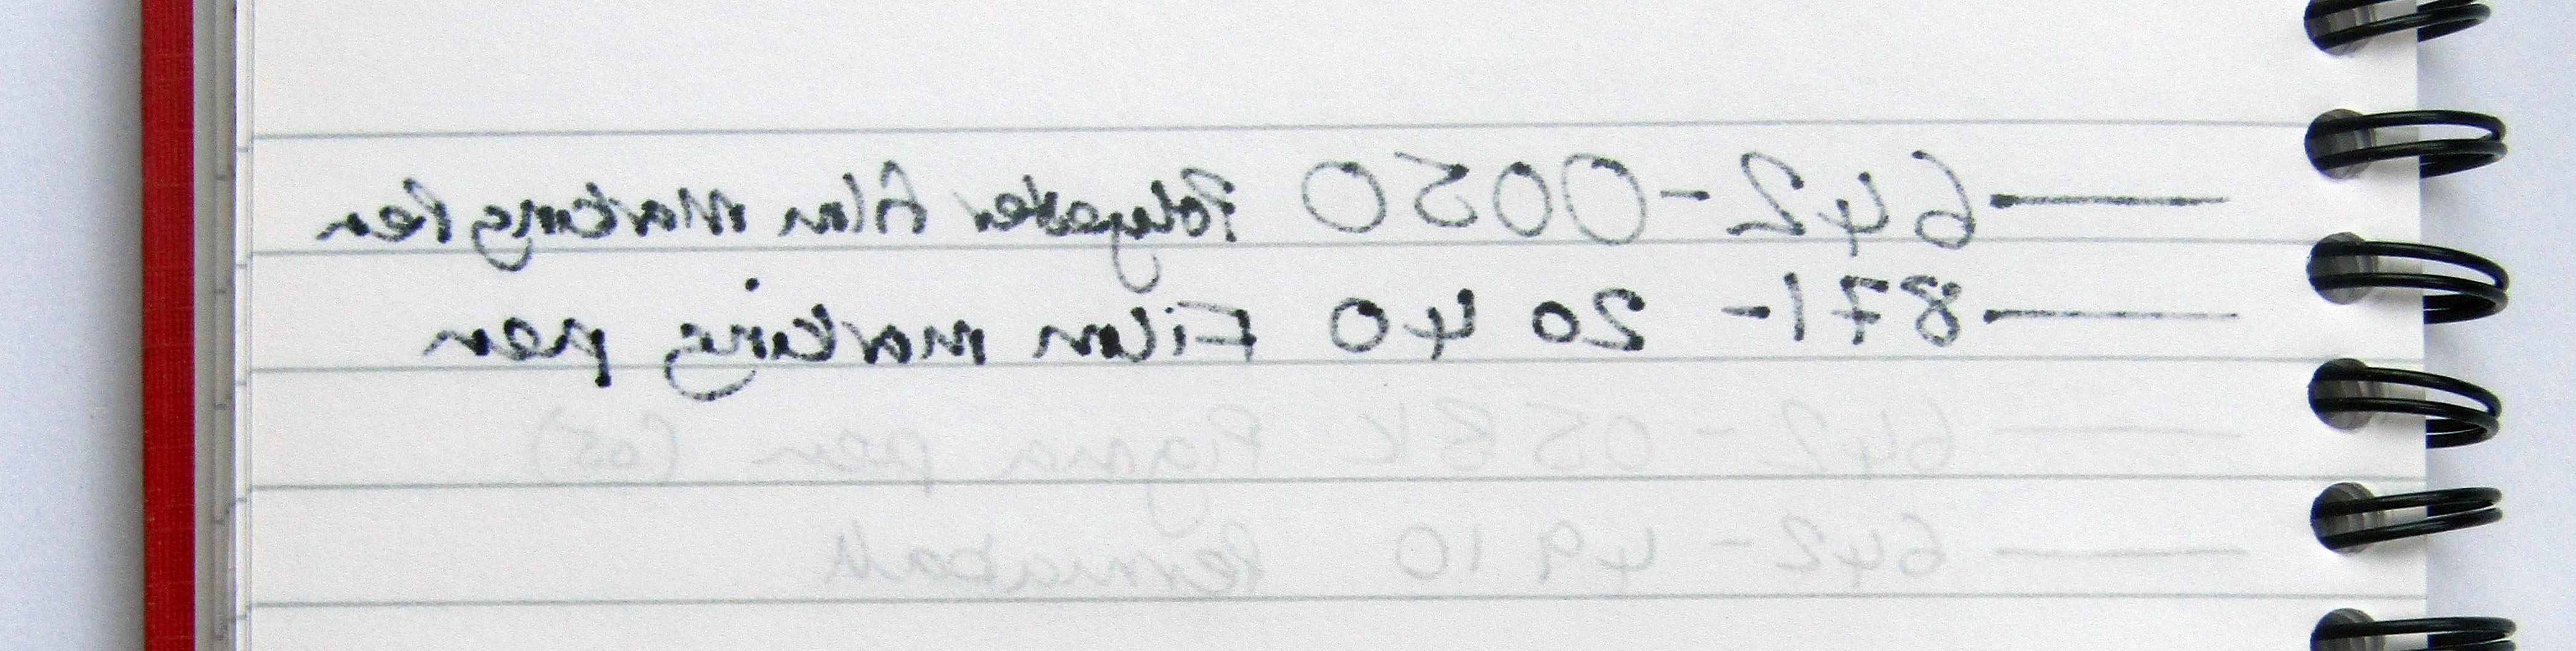 — 642-0050 Polyester Film Marking Pen
— 871-2040 Film marking pen
— 642-05BK Pigma pen (05)
— 642-4910 Permaball